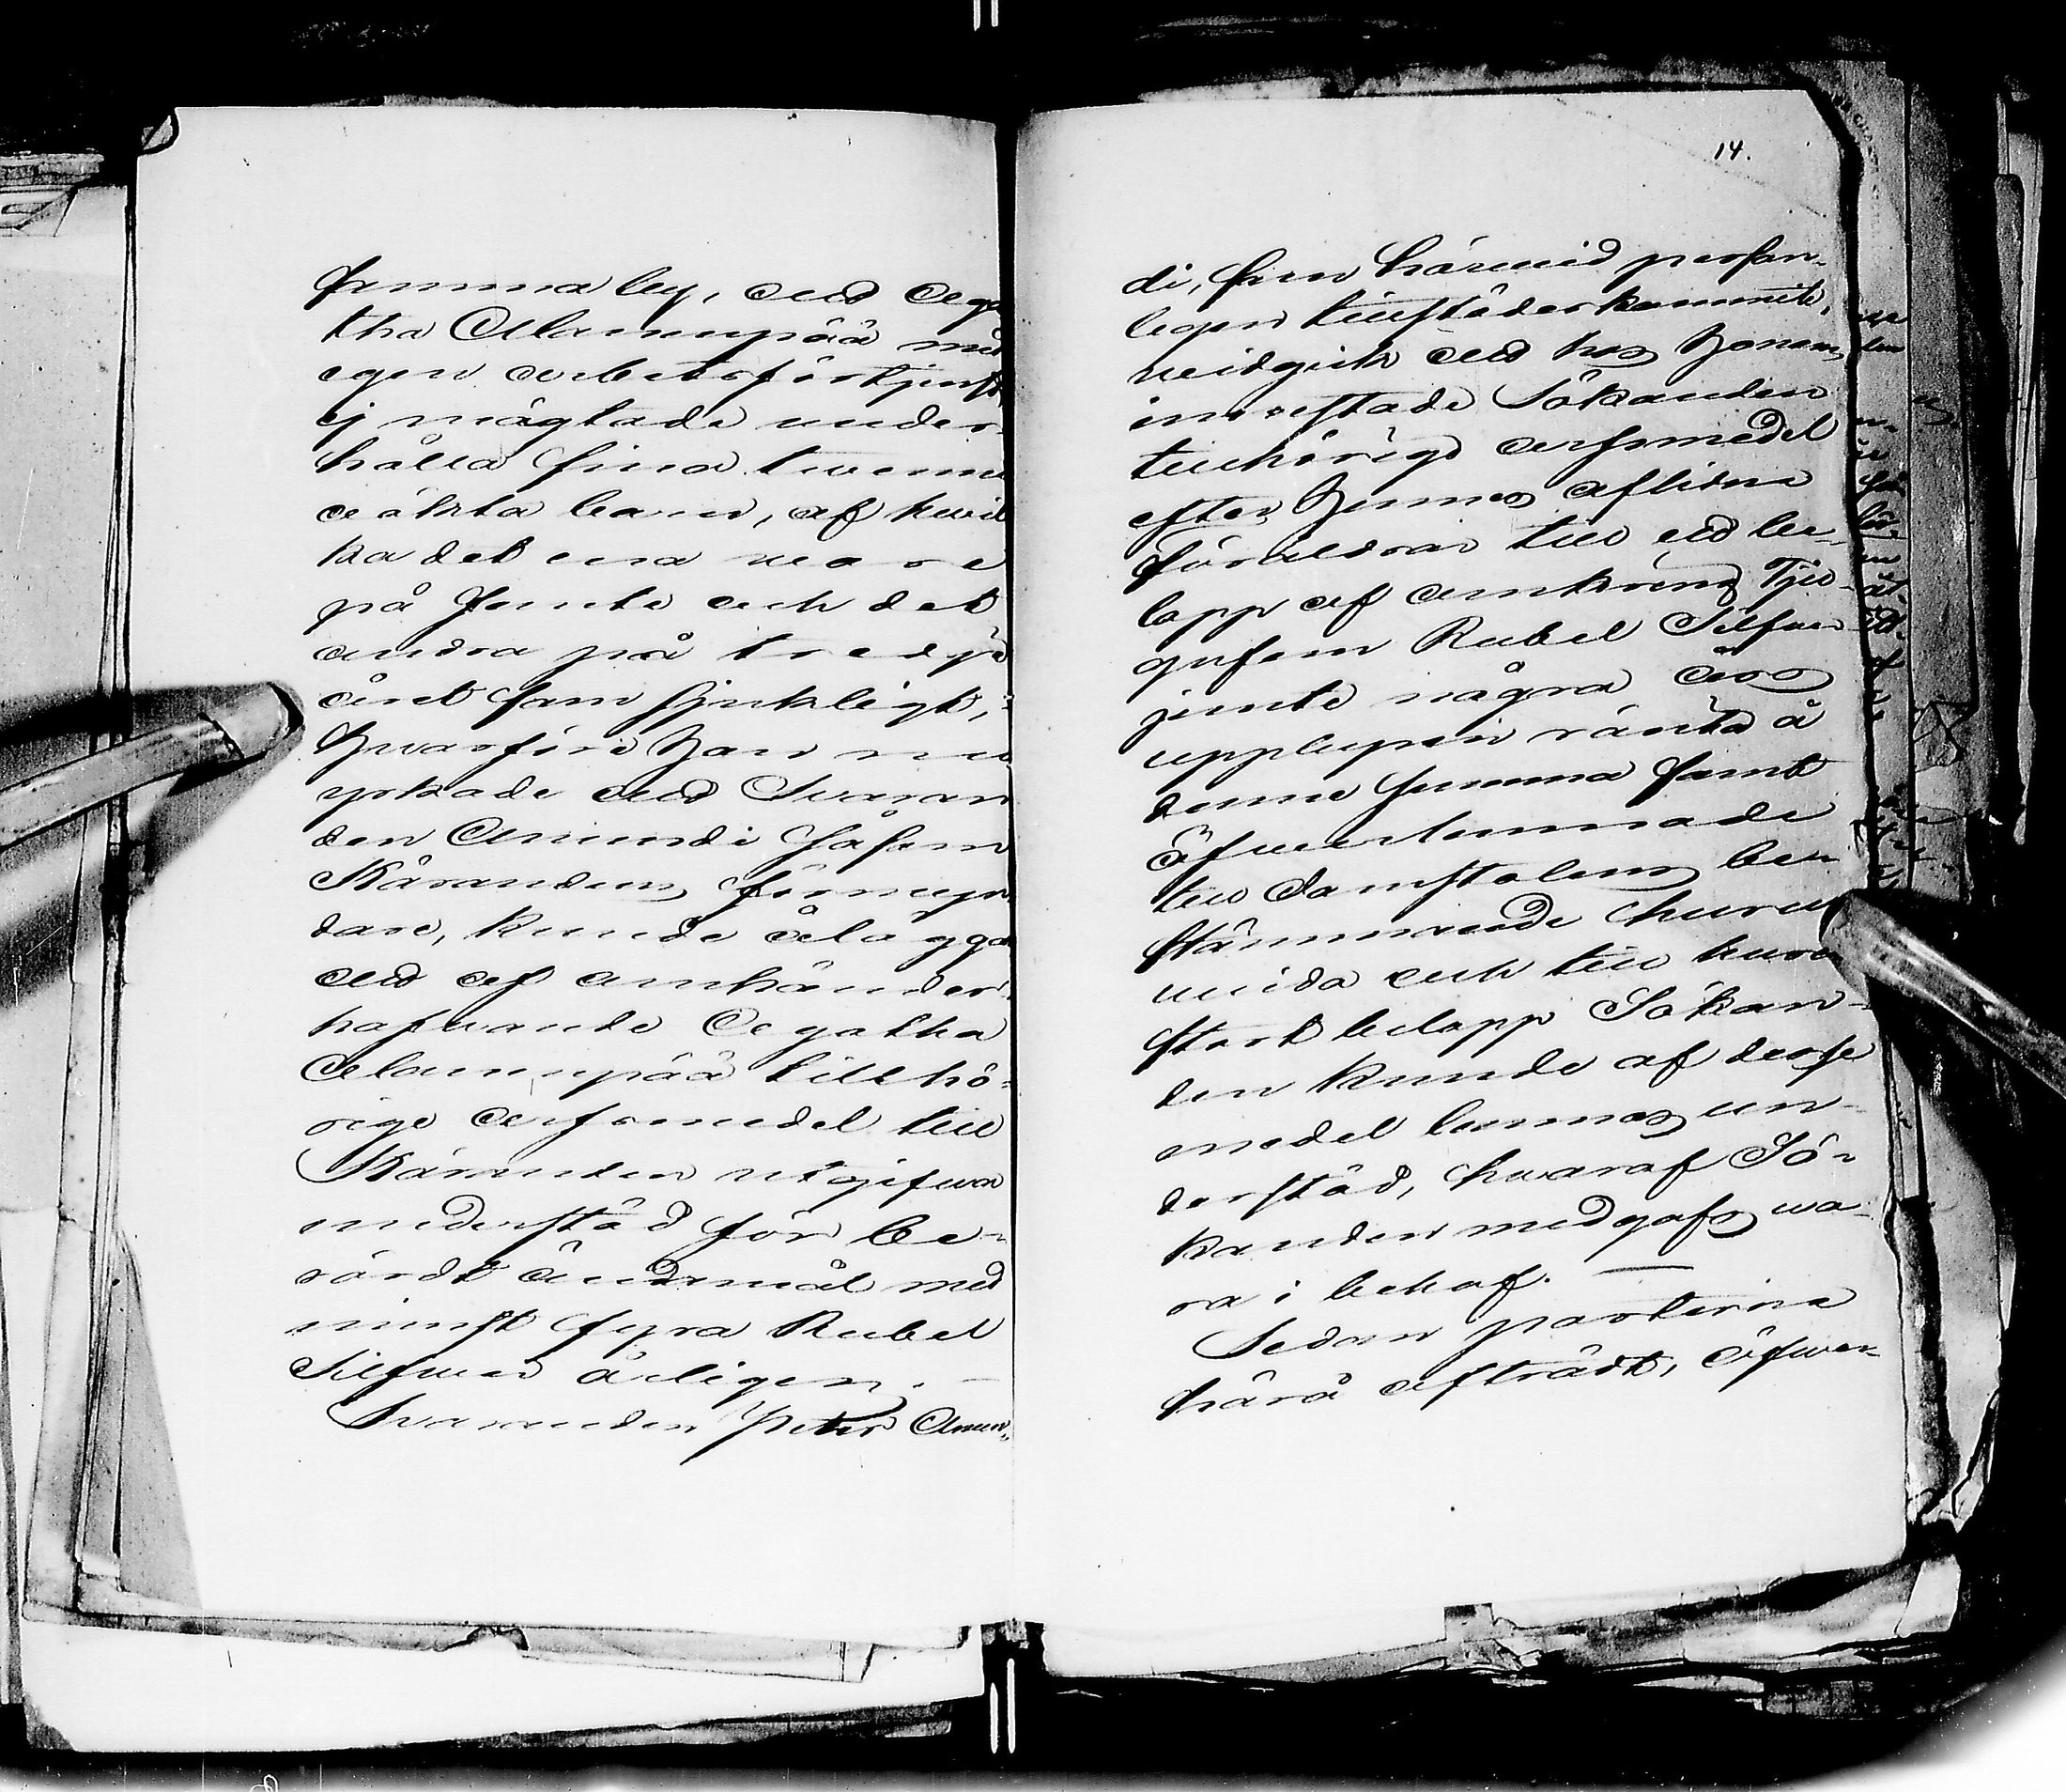 samma by, att Aga
tha Alamupää med
egen arbetsförtjenst
ej mägtade under-
hålla sina tvenne
oäkta barn, af hvil
ka det ena vore
på femte och det
andra på tredje
året samt sjukligt,
Hvarföre Han nu
yrkade att Svaran
den Anundi såsom
Kärandens förmyn
dare, kunde åläggas
att af omhänder
hafvande Agatha
Alamupää tillhö-
rige arfsmedel till
Käranden utgifva
understöd för be-
rördt ändamål med
minst fyra Rubel
Silfver årligen. —
Svaranden Peter Anun-
14.
di, som härwid person-
ligen tillstädeskommit,
vidgick att hos Honom
innestode Sökanden
tillhörigt arfsmedel
efter Hennes aflidne
föräldrar till ett be-
lopp af omkring Tju-
gufem Rubel Silfver
jemte några års
upplupen ränta å
denna summa samt
öfverlemnade
till Domstolens be-
stämmande huru-
vida och till huru
stort belopp Sökan-
den kunde af desse
medel lemnas un-
derstöd, hvaraf Sö-
kanden medgafs va-
ra i behof. —
Sedan parterne
härå afträdt, öfver-